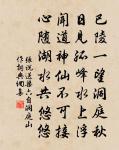 巴陵一望洞庭秋
日見孤峰水上浮
聞道神仙不可接
心隨湖水共悠悠
張說送梁六自洞庭山
作詩典佩集